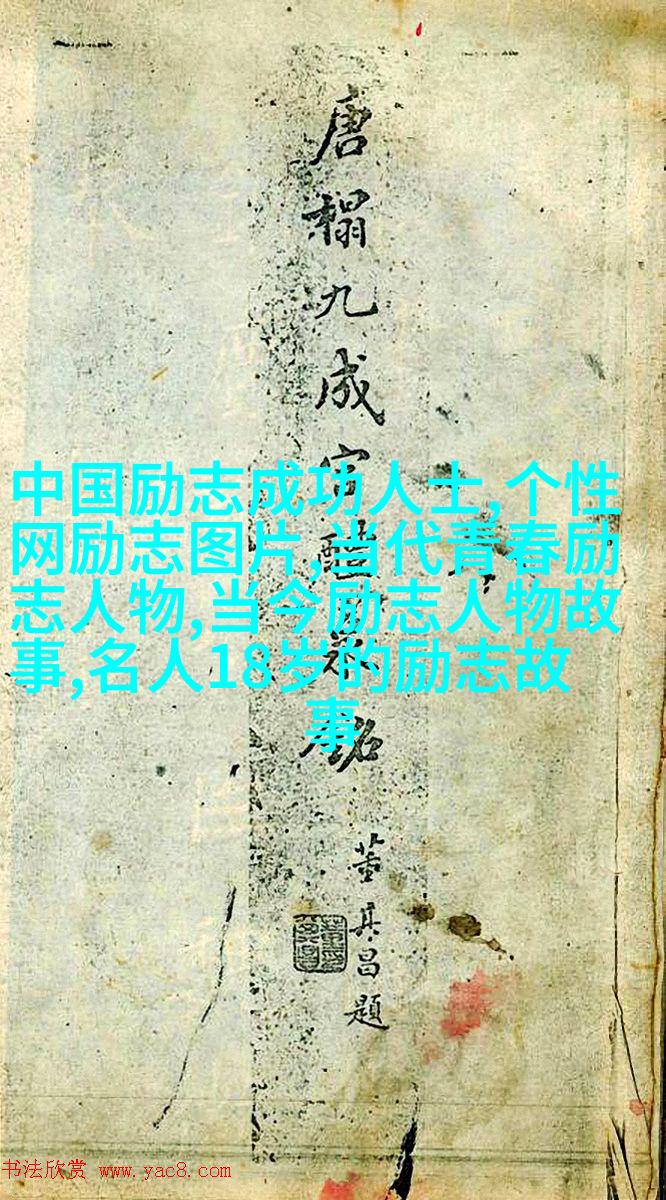 唐榻九成宮醴泉銘
董其昌題
中国励志成功人士,个性
网励志图片,当代青春励
志人物,当今励志人物故
事,名人18岁的励志故
事
书法欣赏 www.yac8.com